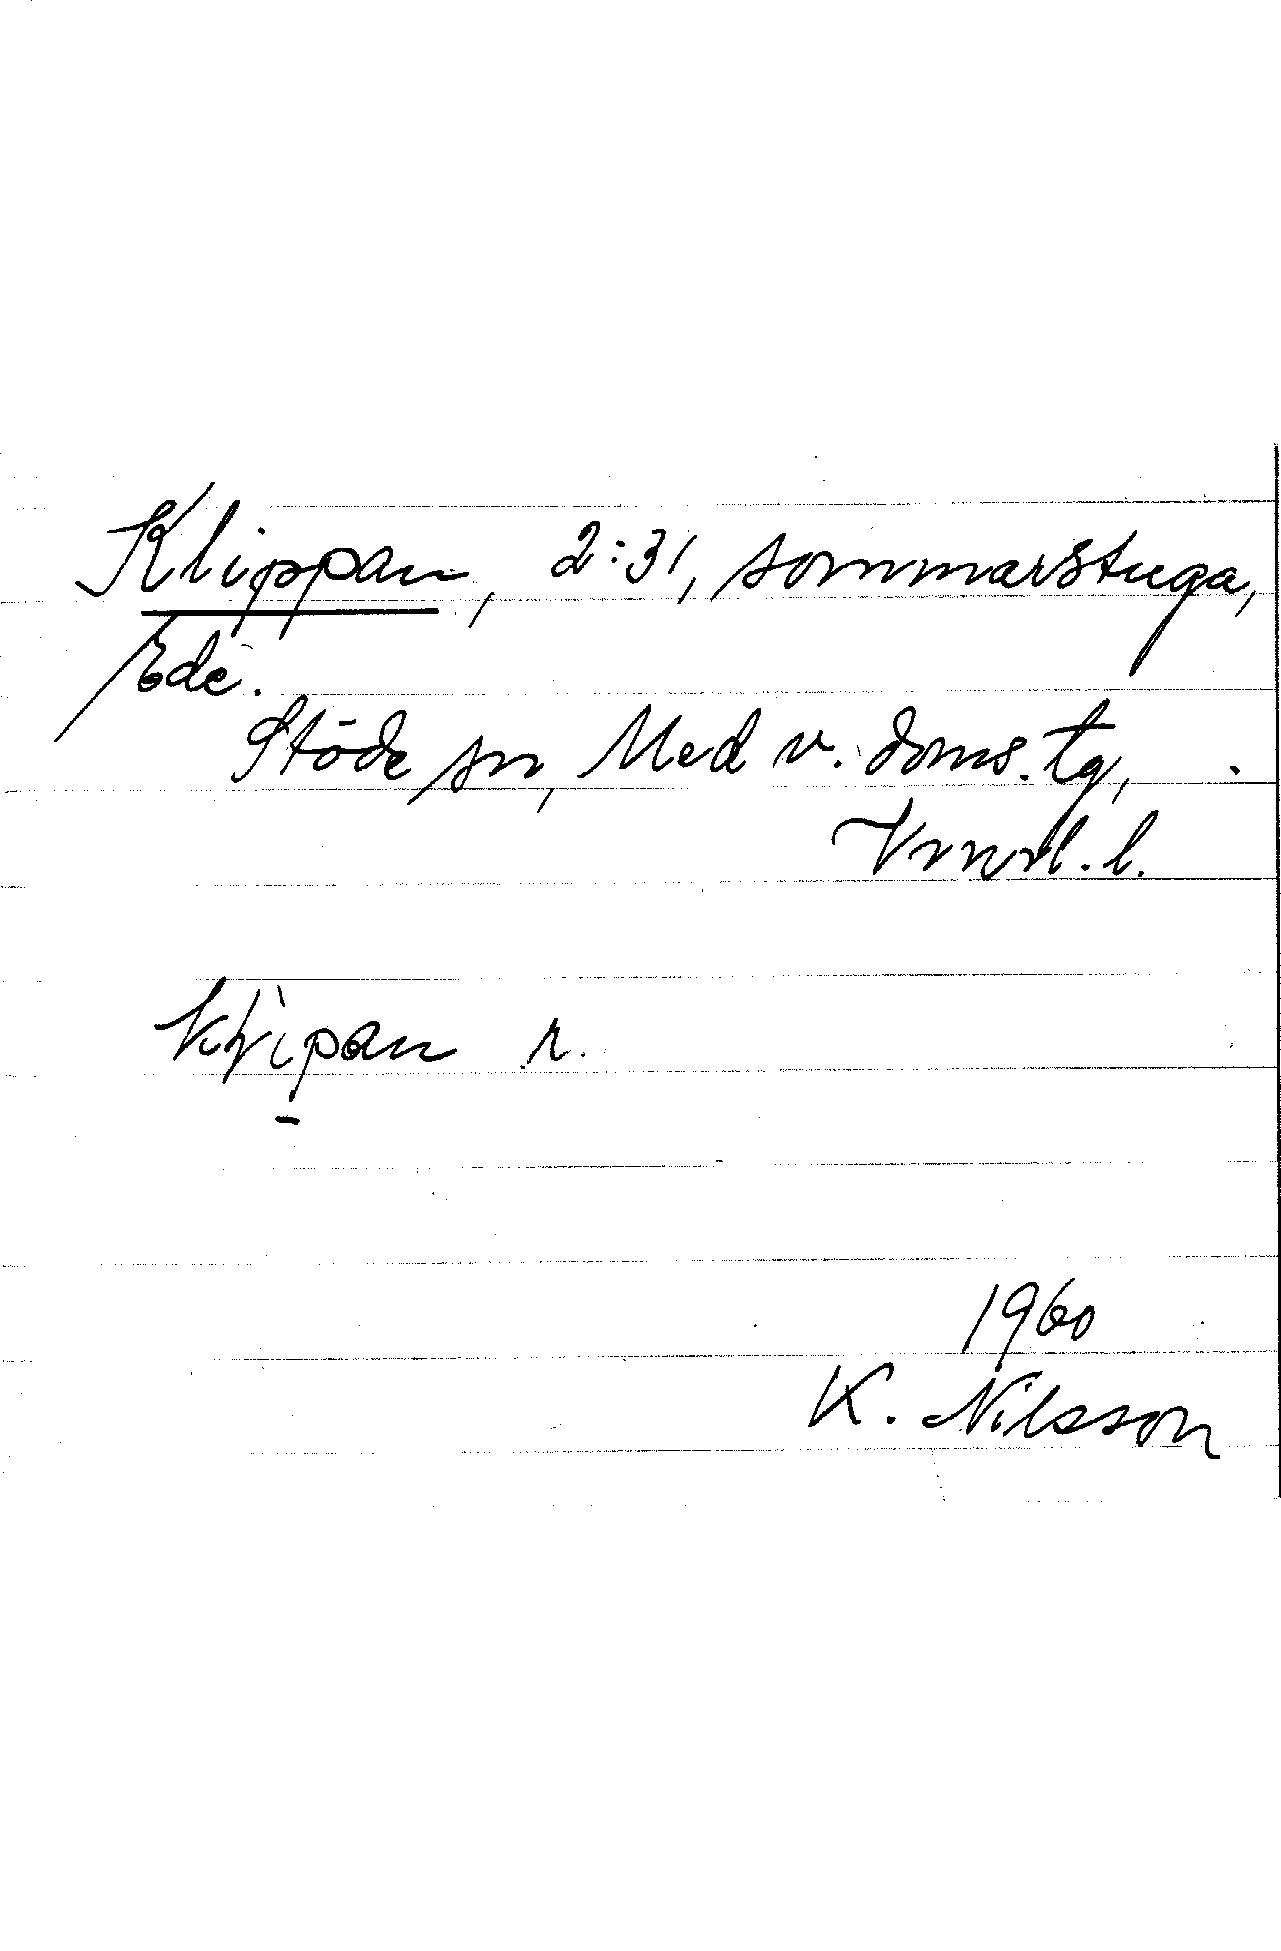 Klippan, 2:31, sommarstuga,
Ede.
Stöde sn, Med v. doms. tg,
Vnrl. l.
klipan r.
1960
K. Nilsson